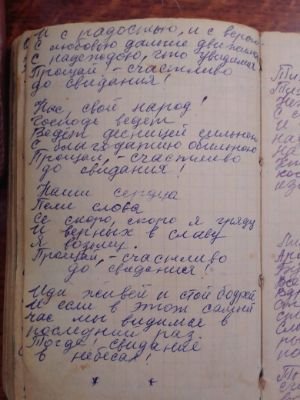 И с радостью, и с верой
С любовью дальше движемся
С надеждою, что увидимся
Прощай, - счастливо
до свидания!
Нас, свой народ!
Господь ведет.
Ведет десницей сильною
С благодатию обильною
Прощай, - счастливо
до свидания!
Наши сердца
Пели слова
Се скоро, скоро я гряду
И верных в славу
Я возьму.
Прощай, - счастливо
до свидания!
Иди живей и стой бодрей
И если в этот самый
час мы видимся в
последний раз
Тогда свидание
в небесах!